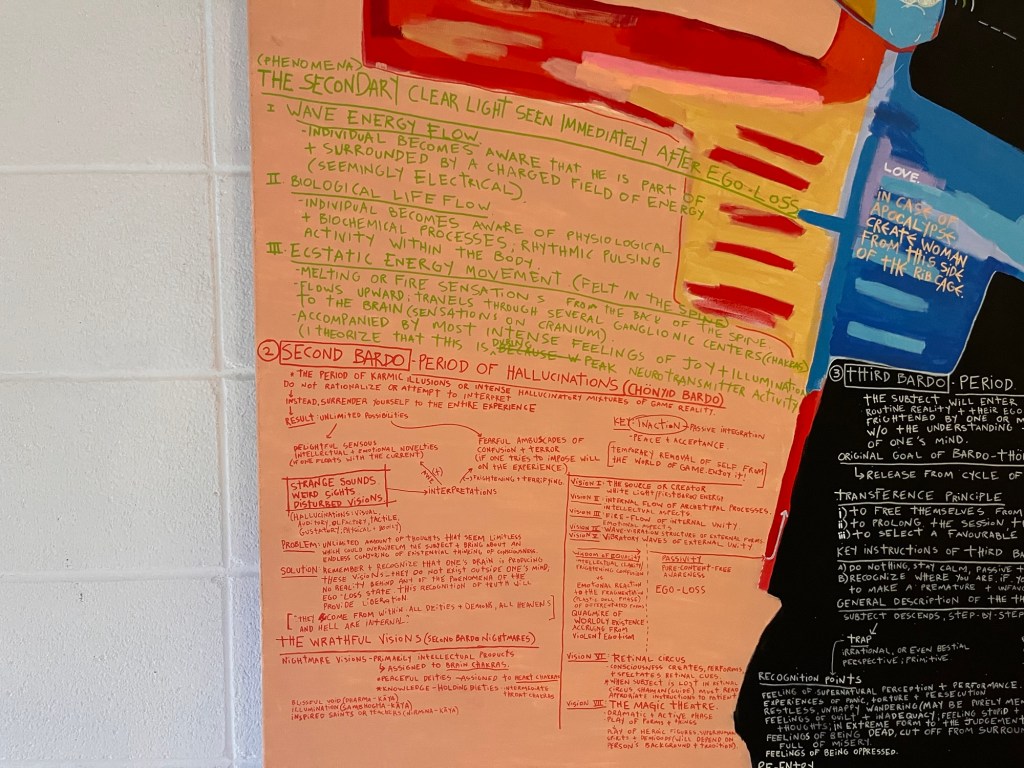 (PHENOMENA)
THE SECONDARY CLEAR LIGHT SEEN IMMEDIATELY AFTER EGO-LOSS
I WAVE ENERGY FLOW.
-INDIVIDUAL BECOMES AWARE THAT HE IS PART OF
+ SURROUNDED BY A CHARGED FIELD OF ENERGY
(SEEMINGLY ELECTRICAL).
II BIOLOGICAL LIFE FLOW
-INDIVIDUAL BECOMES AWARE OF PHYSIOLOGICAL
+ BIOCHEMICAL PROCESSES; RHYTHMIC PULSING
ACTIVITY WITHIN THE BODY
III ECSTATIC ENERGY MOVEMENT (FELT IN THE SPINE)
-MELTING OR FIRE SENSATIONS FROM THE BACK OF THE SPINE
-FLOWS UPWARD; TRAVELS THROUGH SEVERAL GANGLIONIC CENTERS (CHAKRAS)
TO THE BRAIN (SENSATIONS ON CRANIUM).
-ACCOMPANIED BY MOST INTENSE FEELINGS OF JOY + ILLUMINATION
(I THEORIZE THAT THIS IS DURING PEAK NEUROTRANSMITTER ACTIVITY
LOVE.
IN CASE OF
APOCALYPSE
CREATE WOMAN
FROM THIS SIDE
OF THE RIB CAGE.
2 SECOND BARDO - PERIOD OF HALLUCINATIONS (CHÖNYID BARDO)
* THE PERIOD OF KARMIC ILLUSIONS OR INTENSE HALLUCINATORY MIXTURES OF GAME REALITY.
DO NOT RATIONALIZE OR ATTEMPT TO INTERPRET
INSTEAD, SURRENDER YOURSELF TO THE ENTIRE EXPERIENCE
RESULT: UNLIMITED POSSIBILITIES
DELIGHTFUL SENSOUS
INTELLECTUAL + EMOTIONAL NOVELTIES
(IF ONE FLOATS WITH THE CURRENT)
FEARFUL AMBUSCADES OF
CONFUSION + TERROR
(IF ONE TRIES TO IMPOSE WILL
ON THE EXPERIENCE)
FRIGHTENING + TERRIFYING
STRANGE SOUNDS
WEIRD SIGHTS
DISTURBED VISIONS
INTERPRETATIONS
(HALLUCINATIONS: VISUAL,
AUDITORY, OLFACTORY, TACTILE,
GUSTATORY, PHYSICAL + BODILY)
PROBLEM: UNLIMITED AMOUNT OF THOUGHTS THAT SEEM LIMITLESS
WHICH COULD OVERWHELM THE SUBJECT + BRING ABOUT AN
ENDLESS CONJURING OF EXISTENTIAL THINKING OF CONSCIOUSNESS.
SOLUTION: REMEMBER + RECOGNIZE THAT ONE'S BRAIN IS PRODUCING
THESE VISIONS. THEY DO NOT EXIST OUTSIDE ONE'S MIND.
NO REALITY BEHIND ANY OF THE PHENOMENA OF THE
EGO-LOSS STATE. THIS RECOGNITION OF TRUTH WILL
PROVIDE LIBERATION
["THEY COME FROM WITHIN: ALL DEITIES + DEMONS, ALL HEAVENS
AND HELL ARE INTERNAL."]
THE WRATHFUL VISIONS (SECOND BARDO NIGHTMARES)
NIGHTMARE VISIONS - PRIMARILY INTELLECTUAL PRODUCTS
ASSIGNED TO BRAIN CHAKRAS.
*PEACEFUL DEITIES - ASSIGNED TO HEART CHAKRAS
*KNOWLEDGE-HOLDING DIETIES: INTERMEDIATE
THROAT CHAKRAS
BLISSFUL VOID (DHARMA-KĀYA)
ILLUMINATION (SAMBHOGHA-KĀYA)
INSPIRED SAINTS OR TEACHERS (NIRMĀNA-KĀYA)
KEY: INACTION PASSIVE INTEGRATION
-PEACE + ACCEPTANCE.
[TEMPORARY REMOVAL OF SELF FROM
THE WORLD OF GAME. ENJOY IT!]
VISION I: THE SOURCE OR CREATOR
WHITE LIGHT/FIRST BARDO ENERGY
VISION II: INTERNAL FLOW OF ARCHETIPAL PROCESSES.
INTELLECTUAL ASPECTS
VISION III: FIRE-FLOW OF INTERNAL UNITY
EMOTIONAL ASPECTS
VISION IV: WAVE-VIBRATION STRUCTURE OF EXTERNAL FORMS
VISION V: VIBRATORY WAVES OF EXTERNAL UNITY
WISDOM OF EQUALITY
INTELLECTUAL CLARITY
FRIGHTENING CONFUSION
OR
EMOTIONAL REACTION
TO THE FRAGMENTATION
(PLASTIC DOLL PHASE)
OF DIFFERENTIATED FORMS
QUAGMIRE OF
WORLDLY EXISTENCE
ACCRUING FROM
VIOLENT EGOTISM
PASSIVITY
PURE CONTENT-FREE
AWARENESS
EGO-LOSS
VISION VI: RETINAL CIRCUS
-CONSCIOUSNESS CREATES, PERFORMS,
+ SPECTATES RETINAL CUES.
*WHEN SUBJECT IS LOST IN RETINAL
CIRCUS SHAMAN (GUIDE) MUST READ
APPROPRIATE INSTRUCTIONS TO PATIENT
VISION VII: THE MAGIC THEATRE.
-DRAMATIC + ACTIVE PHASE
-PLAY OF FORMS + THINGS
PLAY OF HEROIC FIGURES, SUPERHUMAN
SPIRITS + DEMIGODS (WILL DEPEND ON
PERSON'S BACKGROUND + TRADITION).
3 THIRD BARDO - PERIOD
THE SUBJECT WILL ENTER
ROUTINE REALITY + THEIR EGO
FRIGHTENED BY ONE OR
W/O THE UNDERSTANDING
OF ONE'S MIND.
ORIGINAL GOAL OF BARDO-THÖ
RELEASE FROM CYCLE OF
TRANSFERENCE PRINCIPLE
i) TO FREE THEMSELVES FROM
ii) TO PROLONG THE SESSION
iii) TO SELECT A FAVOURABLE
KEY INSTRUCTIONS OF THIRD BA
A) DO NOTHING, STAY CALM, PASSIVE +
B) RECOGNIZE WHERE YOU ARE. IF YO
TO MAKE A PREMATURE + UNFAVO
GENERAL DESCRIPTION OF THE TH
SUBJECT DESCENDS, STEP-BY-STEP
TRAP
IRRATIONAL, OR EVEN BESTIAL
PERSPECTIVE; PRIMITIVE.
RECOGNITION POINTS
FEELING OF SUPERNATURAL PERCEPTION + PERFORMANCE.
EXPERIENCES OF PANIC, TORTURE + PERSECUTION
RESTLESS, UNHAPPY WANDERING (MAY BE PURELY ME
FEELINGS OF GUILT + INADEQUACY; FEELING STUPID +
THOUGHTS; IN EXTREME FORM TO THE JUDGEMENT
FEELINGS OF BEING DEAD, CUT OFF FROM SURROUN
FULL OF MISERY.
FEELINGS OF BEING OPPRESSED.
RE-ENTRY